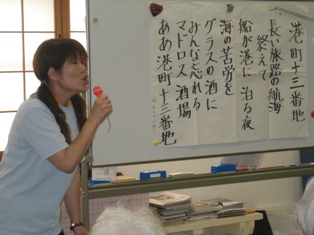 港町十三番地
長い旅路の航海
終えて
船が港に泊る夜
海の苦労を
グラスの酒に
みんな忘れる
マドロス酒場
ああ港町十三番地